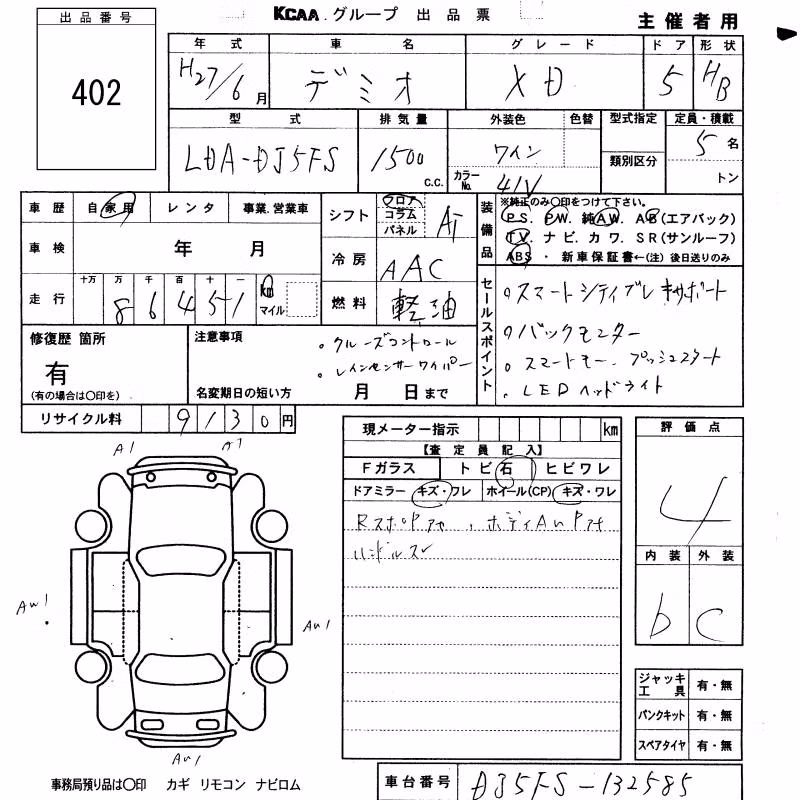 KCAA.グループ 出品票
主催者用
出品番号
402
年式 車名 グレード ドア 形状
H27/6月 デミオ XD 5 HB
型式 排気量 外装色 色替 型式指定 定員・積載
LDA-DJ5FS 1500 C.C. ワイン 5名
カラーNo. 41V 類別区分 トン
車歴 自家用 レンタ 事業.営業車
車検 年 月
走行 十万 万 千 百 十 一
8 6 4 5 1 km マイル
シフト フロア コラム パネル AT
冷房 AAC
燃料 軽油
装備品
※純正のみ〇印をつけて下さい。
PS. PW. 純AW. AB(エアバック)
TV. ナビ. カワ. SR(サンルーフ)
ABS ・ 新車保証書←(注) 後日送りのみ
セールスポイント
。スマートシティブレーキサポート
。バックモニター
。スマートキー. プッシュスタート
。LEDヘッドライト
修復歴 箇所
有
(有の場合は〇印を)
注意事項
。クルーズコントロール
。レインセンサーワイパー
名変期日の短い方 月 日まで
リサイクル料 9130円
現メーター指示 km
【査定員記入】
Fガラス トビ石 ヒビワレ
ドアミラー キズ・ワレ ホイール(CP) キズ・ワレ
ハンドルスレ
評価点
4
内装 外装
b C
A1 A1
AU1
AU1
AU1
ジャッキ工具 有・無
パンクキット 有・無
スペアタイヤ 有・無
事務局預り品は〇印 カギ リモコン ナビロム
車台番号 DJ5FS-132585